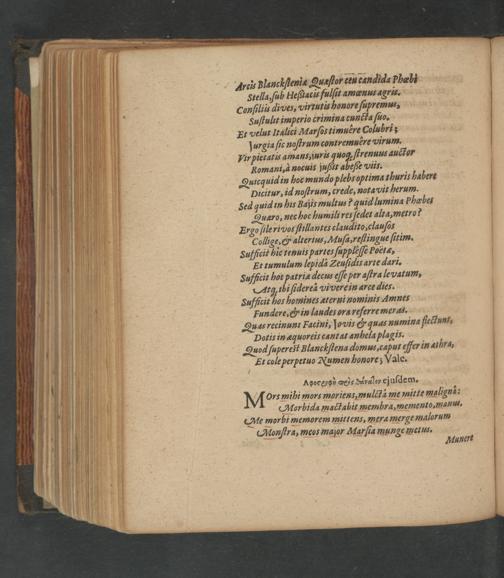 Arcis Blancksteniæ Quæstor ceu candida Phœbi
Stella, sub Hestiacis fulsit amœnus agris.
Consiliis dives, virtutis honore supremus,
Sustulit imperio crimina cuncta suo.
Et velut Italici Marsos timuêre Colubri;
Jurgia sic nostrum contremuêre virum.
Vir pietatis amans, iuris quoq; strenuus auctor
Romani, à nocuis jußit abeße viis.
Quicquid in hoc mundo plebs optima thuris habere
Dicitur, id nostrum, crede, notavit herum.
Sed quid in his Bajis multus? quid lumina Phœbes
Quæro, nec hoc humili res sedet alta, metro?
Ergo sile rivos stillantes claudito, clausos
Collige, & alterius, Musa, restingue sitim.
Sufficit hic tenuis partes supplêsse Poëtæ,
Et tumulum lepidâ Zeusidis arte dari.
Sufficit hoc patriæ decus esse per astra levatum,
Atq; ibi sidereâ vivere in arce dies.
Sufficit hos homines æterni nominis Amnes
Fundere, & in laudes ora referre meras.
Quas recinunt Facini, Jovis & quas numina flectunt,
Dotis in æquoreis cantat anhela plagis.
Quod superest Blanckstena domus, caput effer in æthra,
Et cole perpetuo Numen honore; Vale.
πρὸς θάνατον ejusdem.
MOrs mihi mors moriens, mulctâ me mitte malignâ:
Morbida mactabis membra, memento, manus.
Me morbi memorem mittens, mera merge malorum
Monstra, meos major Marsia munge metus.
Munere